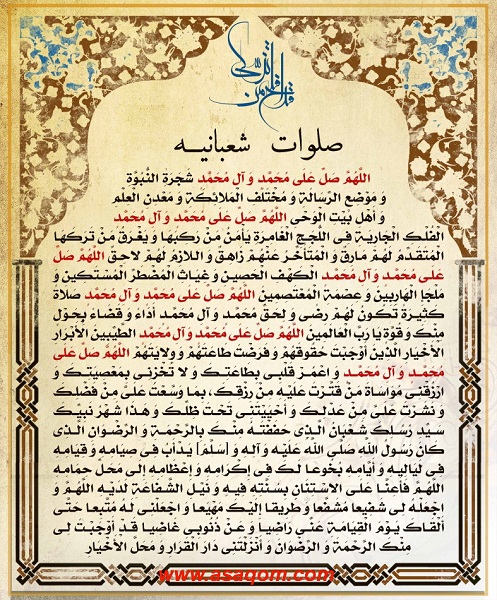 قد افلح من تزکی
صلوات شعبانیه
اللهم صل علی محمد و آل محمد شجرة النبوة
و موضع الرسالة و مختلف الملائکة و معدن العلم
و أهل بیت الوحی اللهم صل علی محمد و آل محمد
الفلک الجاریة فی اللجج الغامرة یأمن من رکبها و یغرق من ترکها
المتقدم لهم مارق و المتأخر عنهم زاهق و اللازم لهم لاحق اللهم صل
علی محمد و آل محمد الکهف الحصین و غیاث المضطر المستکین و
ملجإ الهاربین و عصمة المعتصمین اللهم صل علی محمد و آل محمد صلاة
کثیرة تکون لهم رضی و لحق محمد و آل محمد أداء و قضاء بحول
منک و قوة یا رب العالمین اللهم صل علی محمد و آل محمد الطیبین الأبرار
الأخیار الذین أوجبت حقوقهم و فرضت طاعتهم و ولایتهم اللهم صل علی
محمد و آل محمد و اعمر قلبی بطاعتک و لا تخزنی بمعصیتک و
ارزقنی مواساة من قترت علیه من رزقک بما وسعت علی من فضلک
و نشرت علی من عدلک و أحییتنی تحت ظلک و هذا شهر نبیک
سید رسلک شعبان الذی حففته منک بالرحمة و الرضوان الذی
کان رسول الله صلی الله علیه و آله و [سلم] یدأب فی صیامه و قیامه
فی لیالیه و أیامه بخوعا لک فی إکرامه و إعظامه إلی محل حمامه
اللهم فأعنا علی الاستنان بسنته فیه و نیل الشفاعة لدیه اللهم و
اجعله لی شفیعا مشفعا و طریقا إلیک مهیعا و اجعلنی له متبعا حتی
ألقاک یوم القیامة عنی راضیا و عن ذنوبی غاضیا قد أوجبت لی
منک الرحمة و الرضوان و أنزلتنی دار القرار و محل الأخیار
www.asaqom.com